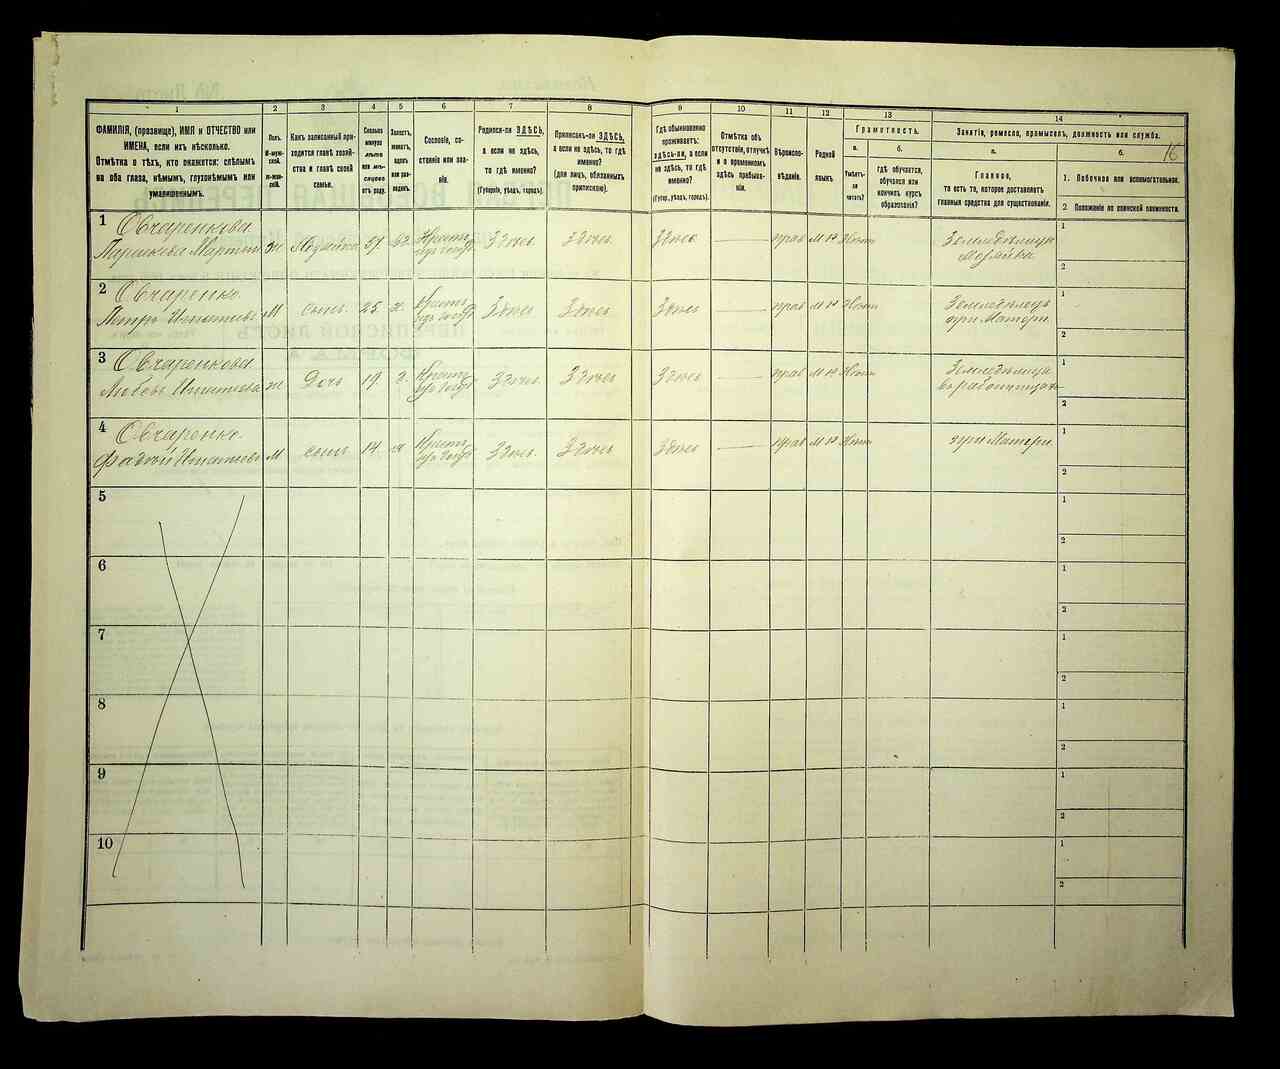 1 2 3 4 5 6 7 8 9 10 11 12 13 14
ФАМИЛІЯ, (прозвище), ИМЯ и ОТЧЕСТВО или
ИМЕНА, если ихъ нѣсколько.
Отмѣтка о тѣхъ, кто окажется: слѣпымъ
на оба глаза, нѣмымъ, глухонѣмымъ или
умалишеннымъ.
Полъ.
М-муж-
ской.
Ж-жен-
скій.
Какъ записанный при-
ходится главѣ хозяй-
ства и главѣ своей
семьи.
Сколько
минуло
лѣтъ
или мѣ-
сяцевъ
отъ роду.
Холостъ,
женатъ,
вдовъ
или раз-
веденъ.
Сословіе, со-
стояніе или зва-
ніе.
Родился-ли ЗДѢСЬ,
а если не здѣсь,
то гдѣ именно?
(Губернія, уѣздъ, городъ).
Приписанъ-ли ЗДѢСЬ,
а если не здѣсь, то гдѣ
именно?
(для лицъ, обязанныхъ
припискою).
Гдѣ обыкновенно
проживаетъ:
здѣсь-ли, а если
не здѣсь, то гдѣ
именно?
(Губер., уѣздъ, городъ).
Отмѣтка объ
отсутствіи, отлучкѣ
и о временномъ
здѣсь пребыва-
ніи.
Вѣроиспо-
вѣданіе.
Родной
языкъ.
Грамотность.
а.
Умѣетъ-
ли
читать?
б.
Гдѣ обучается,
обучался или
кончилъ курсъ
образованія?
Занятіе, ремесло, промыселъ, должность или служба.
а.
Главное,
то есть то, которое доставляетъ
главныя средства для существованія.
б.
16
1. Побочное или вспомогательное.
2. Положеніе по воинской повинности.
1 Овчаренкова
ж Хозяйка 57 Здѣсь Здѣсь Здѣсь прав М Р Нѣтъ Земледѣлица
Хозяйка
1
2
2 Овчаренко
Петръ Игнатьевъ М сынъ 25 х Здѣсь Здѣсь Здѣсь прав М Р Нѣтъ Земледѣлецъ
при Матери
1
2
3 Овчаренкова
Любовь Игнатьева ж Дочь 19 Здѣсь Здѣсь Здѣсь прав М Р Нѣтъ Земледѣлица
1
2
4 Овчаренко
Игнатьевъ М сынъ 14 х Здѣсь Здѣсь Здѣсь прав М Р Нѣтъ при Матери
1
2
5
1
2
6
1
2
7
1
2
8
1
2
9
1
2
10
1
2